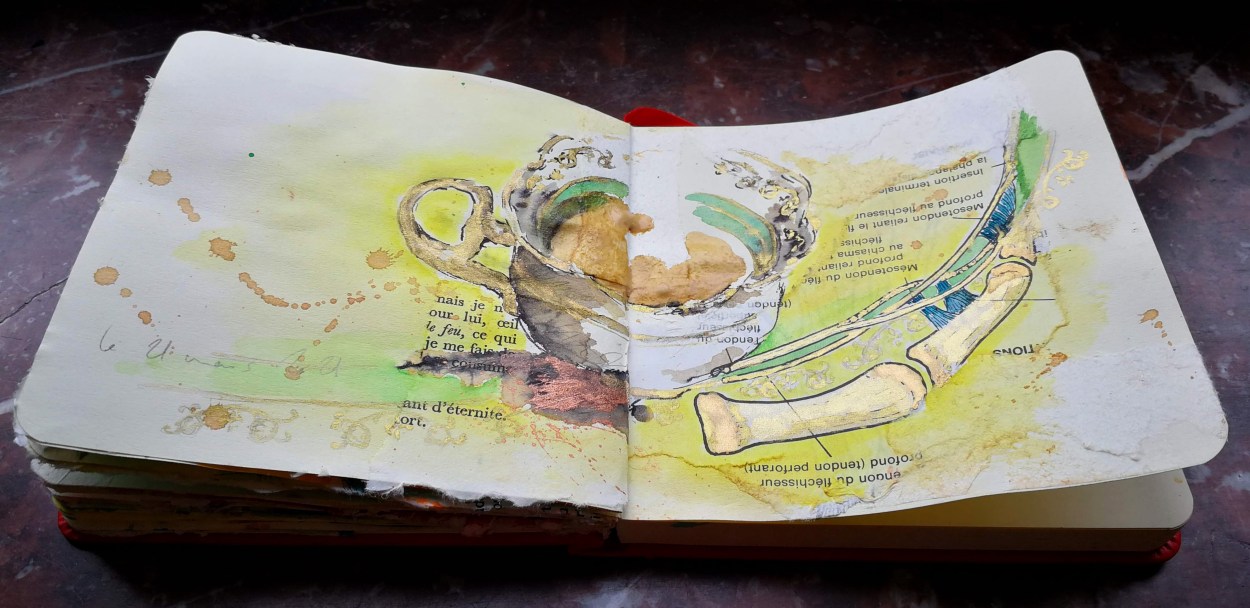 le 21 mars
nais je n
our lui, œil
le feu, ce qui
je me fais
consum
ant d'éternite.
ort.
Insertion terminale
la phalan
Mésotendon reliant le fl
profond au fléchisseur
Mésotendon du flé
profond reliant
au chiasma
fléchiss
Tendon du
fléchisseur
(tendon
TIONS
endon du fléchisseur
profond (tendon perforant)